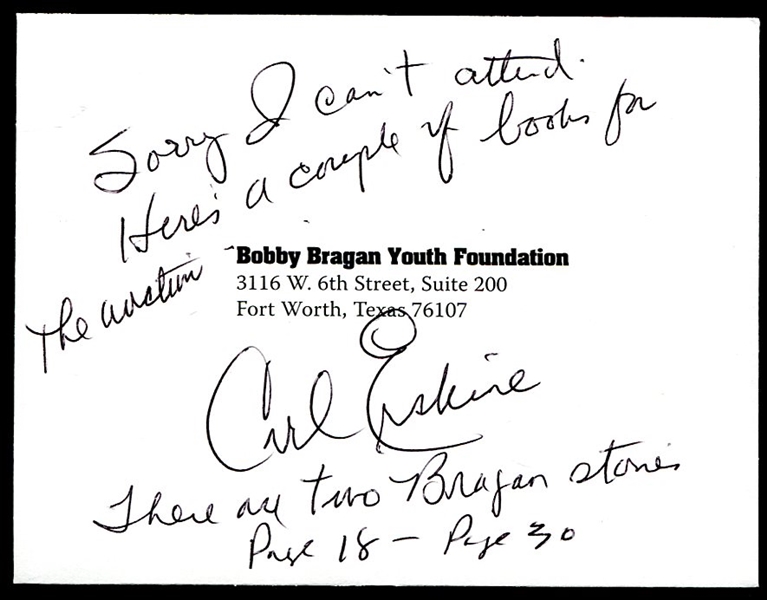 Sorry I can't attend.
Here's a couple of books for
the auction
Bobby Bragan Youth Foundation
3116 W. 6th Street, Suite 200
Fort Worth, Texas 76107
Carl Erskine
There are two Bragan stories
Page 18 - Page 30